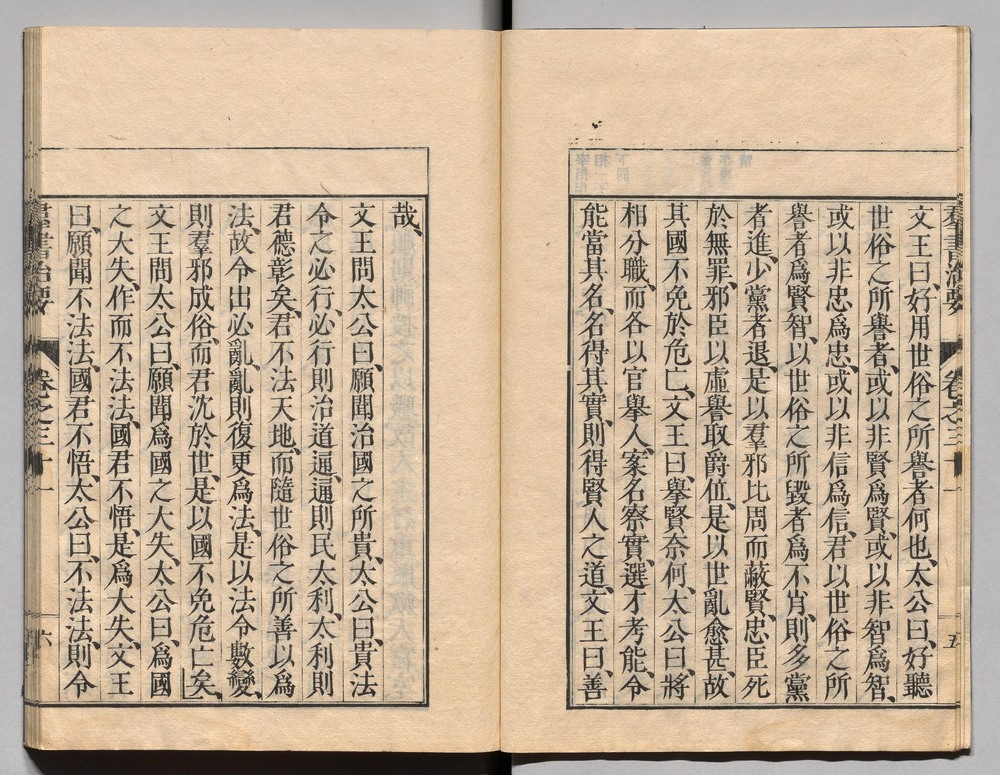 文王曰、好用世俗之所譽者何也、太公曰、好聽
世俗之所譽者、或以非賢爲賢、或以非智爲智、
或以非忠爲忠、或以非信爲信、君以世俗之所
譽者爲賢智、以世俗之所毀者爲不肖、則多黨
者進、少黨者退、是以羣邪比周而蔽賢、忠臣死
於無罪、邪臣以虛譽取爵位、是以世亂愈甚、故
其國不免於危亡、文王曰、擧賢奈何、太公曰、將
相分職、而各以官擧人、案名察實、選才考能、令
能當其名、名得其實、則得賢人之道、文王曰、善
羣書治要
卷之三十一
五
哉、
文王問太公曰、願聞治國之所貴、太公曰、貴法
令之必行、必行則治道通、通則民太利、太利則
君德彰矣、君不法天地、而隨世俗之所善以爲
法、故令出必亂、亂則復更爲法、是以法令數變、
則羣邪成俗、而君沈於世、是以國不免危亡矣、
文王問太公曰、願聞爲國之大失、太公曰、爲國
之大失、作而不法法、國君不悟、是爲大失、文王
曰、願聞不法法、國君不悟、太公曰、不法法、則令
羣書治要
卷之三十一
六